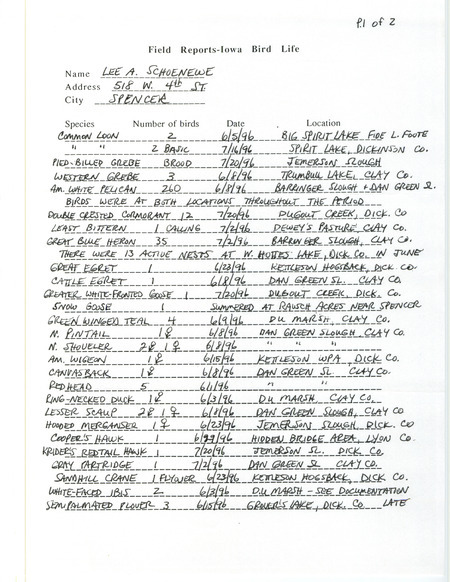 P.1 of 2
Field Reports-Iowa Bird Life
Name LEE A. SCHOENEWE
Address 518 W. 4th ST.
City SPENCER
Species Number of birds Date Location
COMMON LOON 2 6/5/96 BIG SPIRIT LAKE FIDE L. FOOTE
" " 2 BASIC 7/16/96 SPIRIT LAKE, DICKINSON CO.
PIED-BILLED GREBE BROOD 7/20/96 JEMERSON SLOUGH
WESTERN GREBE 3 6/8/96 TRUMBULL LAKE, CLAY CO.
AM. WHITE PELICAN 260 6/8/96 BARRINGER SLOUGH + DAN GREEN SL.
BIRDS WERE AT BOTH LOCATIONS THROUGHOUT THE PERIOD
DOUBLE CRESTED CORMORANT 12 7/20/96 DUGOUT CREEK, DICK. CO
LEAST BITTERN 1 CALLING 7/2/96 DEWEY'S PASTURE, CLAY CO.
GREAT BLUE HERON 35 7/2/96 BARRINGER SLOUGH, CLAY CO.
THERE WERE 13 ACTIVE NESTS AT W. HOTTES LAKE, DICK. CO. IN JUNE
GREAT EGRET 1 6/23/96 KETTLESON HOGSBACK, DICK CO.
CATTLE EGRET 1 6/8/96 DAN GREEN SL. CLAY CO.
GREATER WHITE-FRONTED GOOSE 1 7/20/96 DUGOUT CREEK, DICK. CO.
SNOW GOOSE 1 SUMMERED AT RAUSCH ACRES NEAR SPENCER
GREEN WINGED TEAL 4 6/9/96 DU MARSH, CLAY CO.
N. PINTAIL 1♀ 6/8/96 DAN GREEN SLOUGH, CLAY CO.
N. SHOVELER 2♂ 1♀ 6/8/96 " " "
AM. WIGEON 1♂ 6/15/96 KETTLESON WPA, DICK CO.
CANVASBACK 1♂ 6/8/96 DAN GREEN SL. CLAY CO.
REDHEAD 5 6/1/96 " " "
RING-NECKED DUCK 1♂ 6/3/96 DU MARSH, CLAY CO.
LESSER SCAUP 2♂ 1♀ 6/8/96 DAN GREEN SLOUGH, CLAY CO
HOODED MERGANSER 1♀ 6/23/96 JEMERSON SLOUGH, DICK. CO
COOPER'S HAWK 1 HIDDEN BRIDGE AREA, LYON CO.
KRIDER'S REDTAIL HAWK 1 7/20/96 JEMERSON SL. DICK. CO.
GRAY PARTRIDGE 1 7/2/96 DAN GREEN SL CLAY CO.
SANDHILL CRANE 1 FLYOVER 6/23/96 KETTLESON HOGSBACK, DICK. CO.
WHITE-FACED IBIS 2 6/3/96 DU MARSH - SEE DOCUMENTATION
SEMIPALMATED PLOVER 3 6/15/96 GROVER'S LAKE, DICK. CO LATE